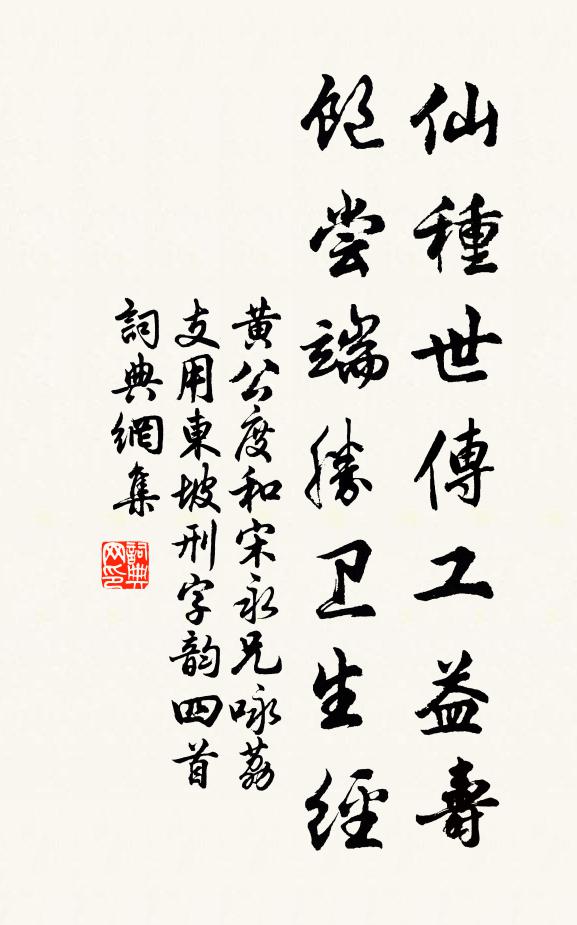 仙種世傳工益壽
飽尝端勝卫生經
黄公度和宋永兄咏荔
支用東坡刑字韵四首
詞典網集
詞典网印